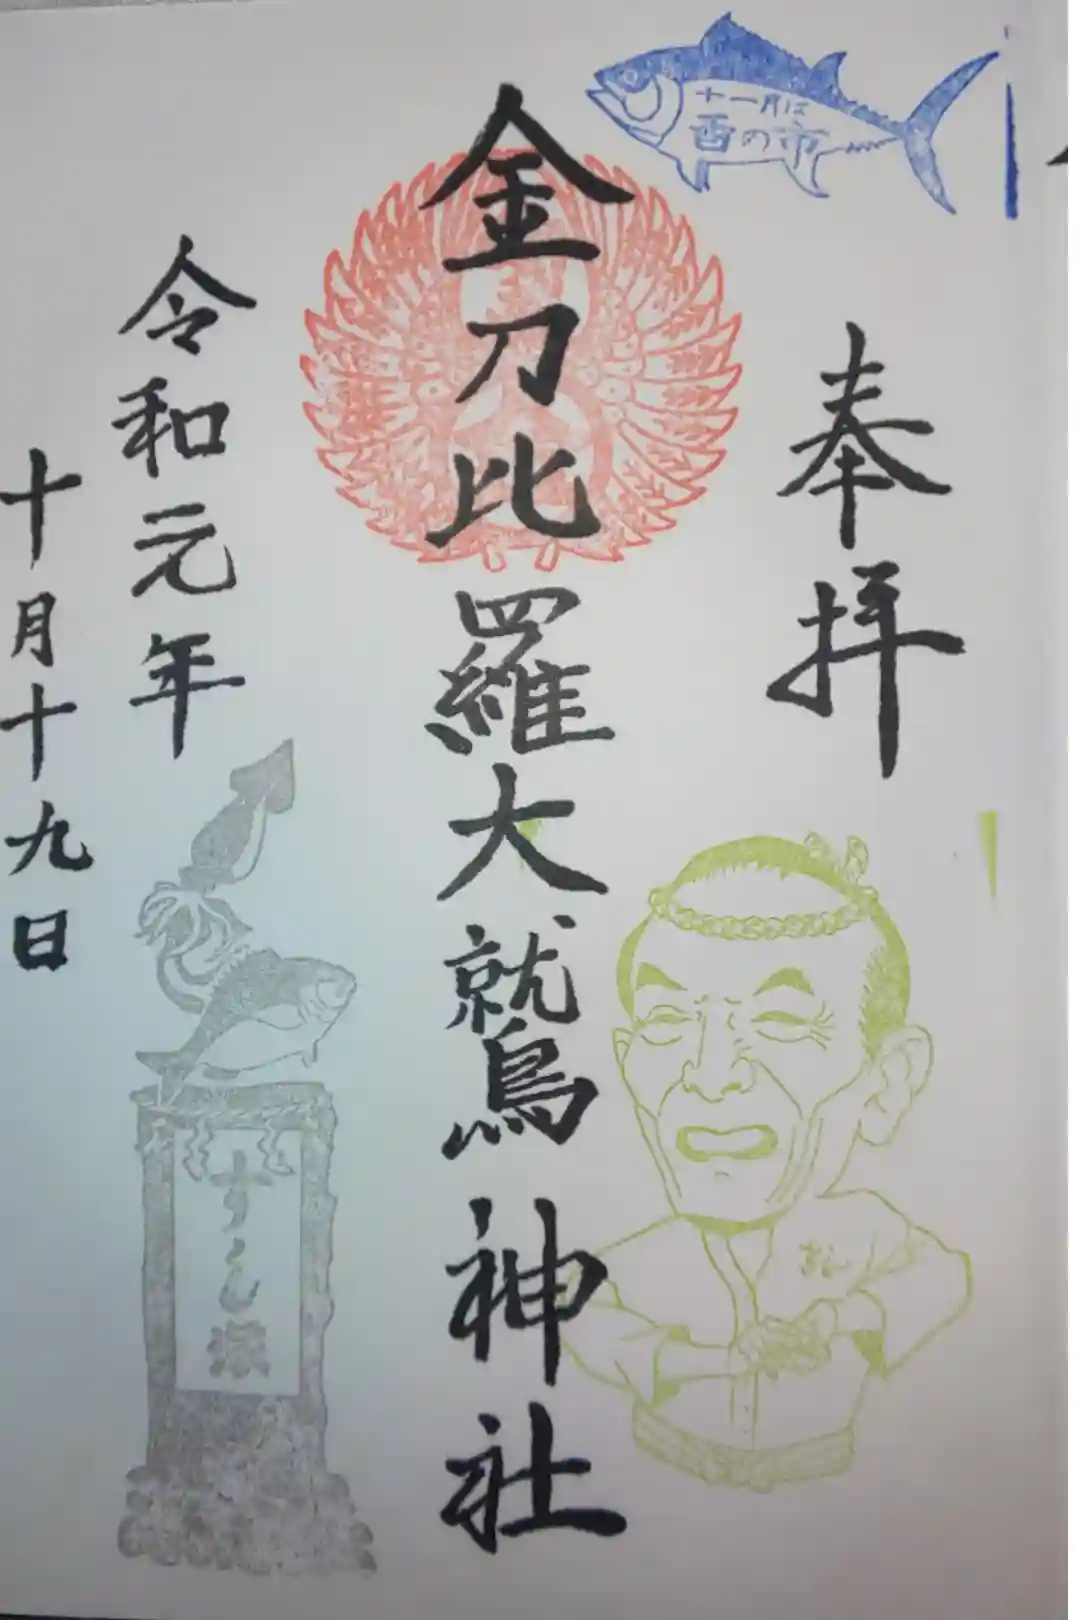 十一月は
酉の市
奉拝
金刀比羅大鷲神社
令和元年
十月十九日
すゝし塚